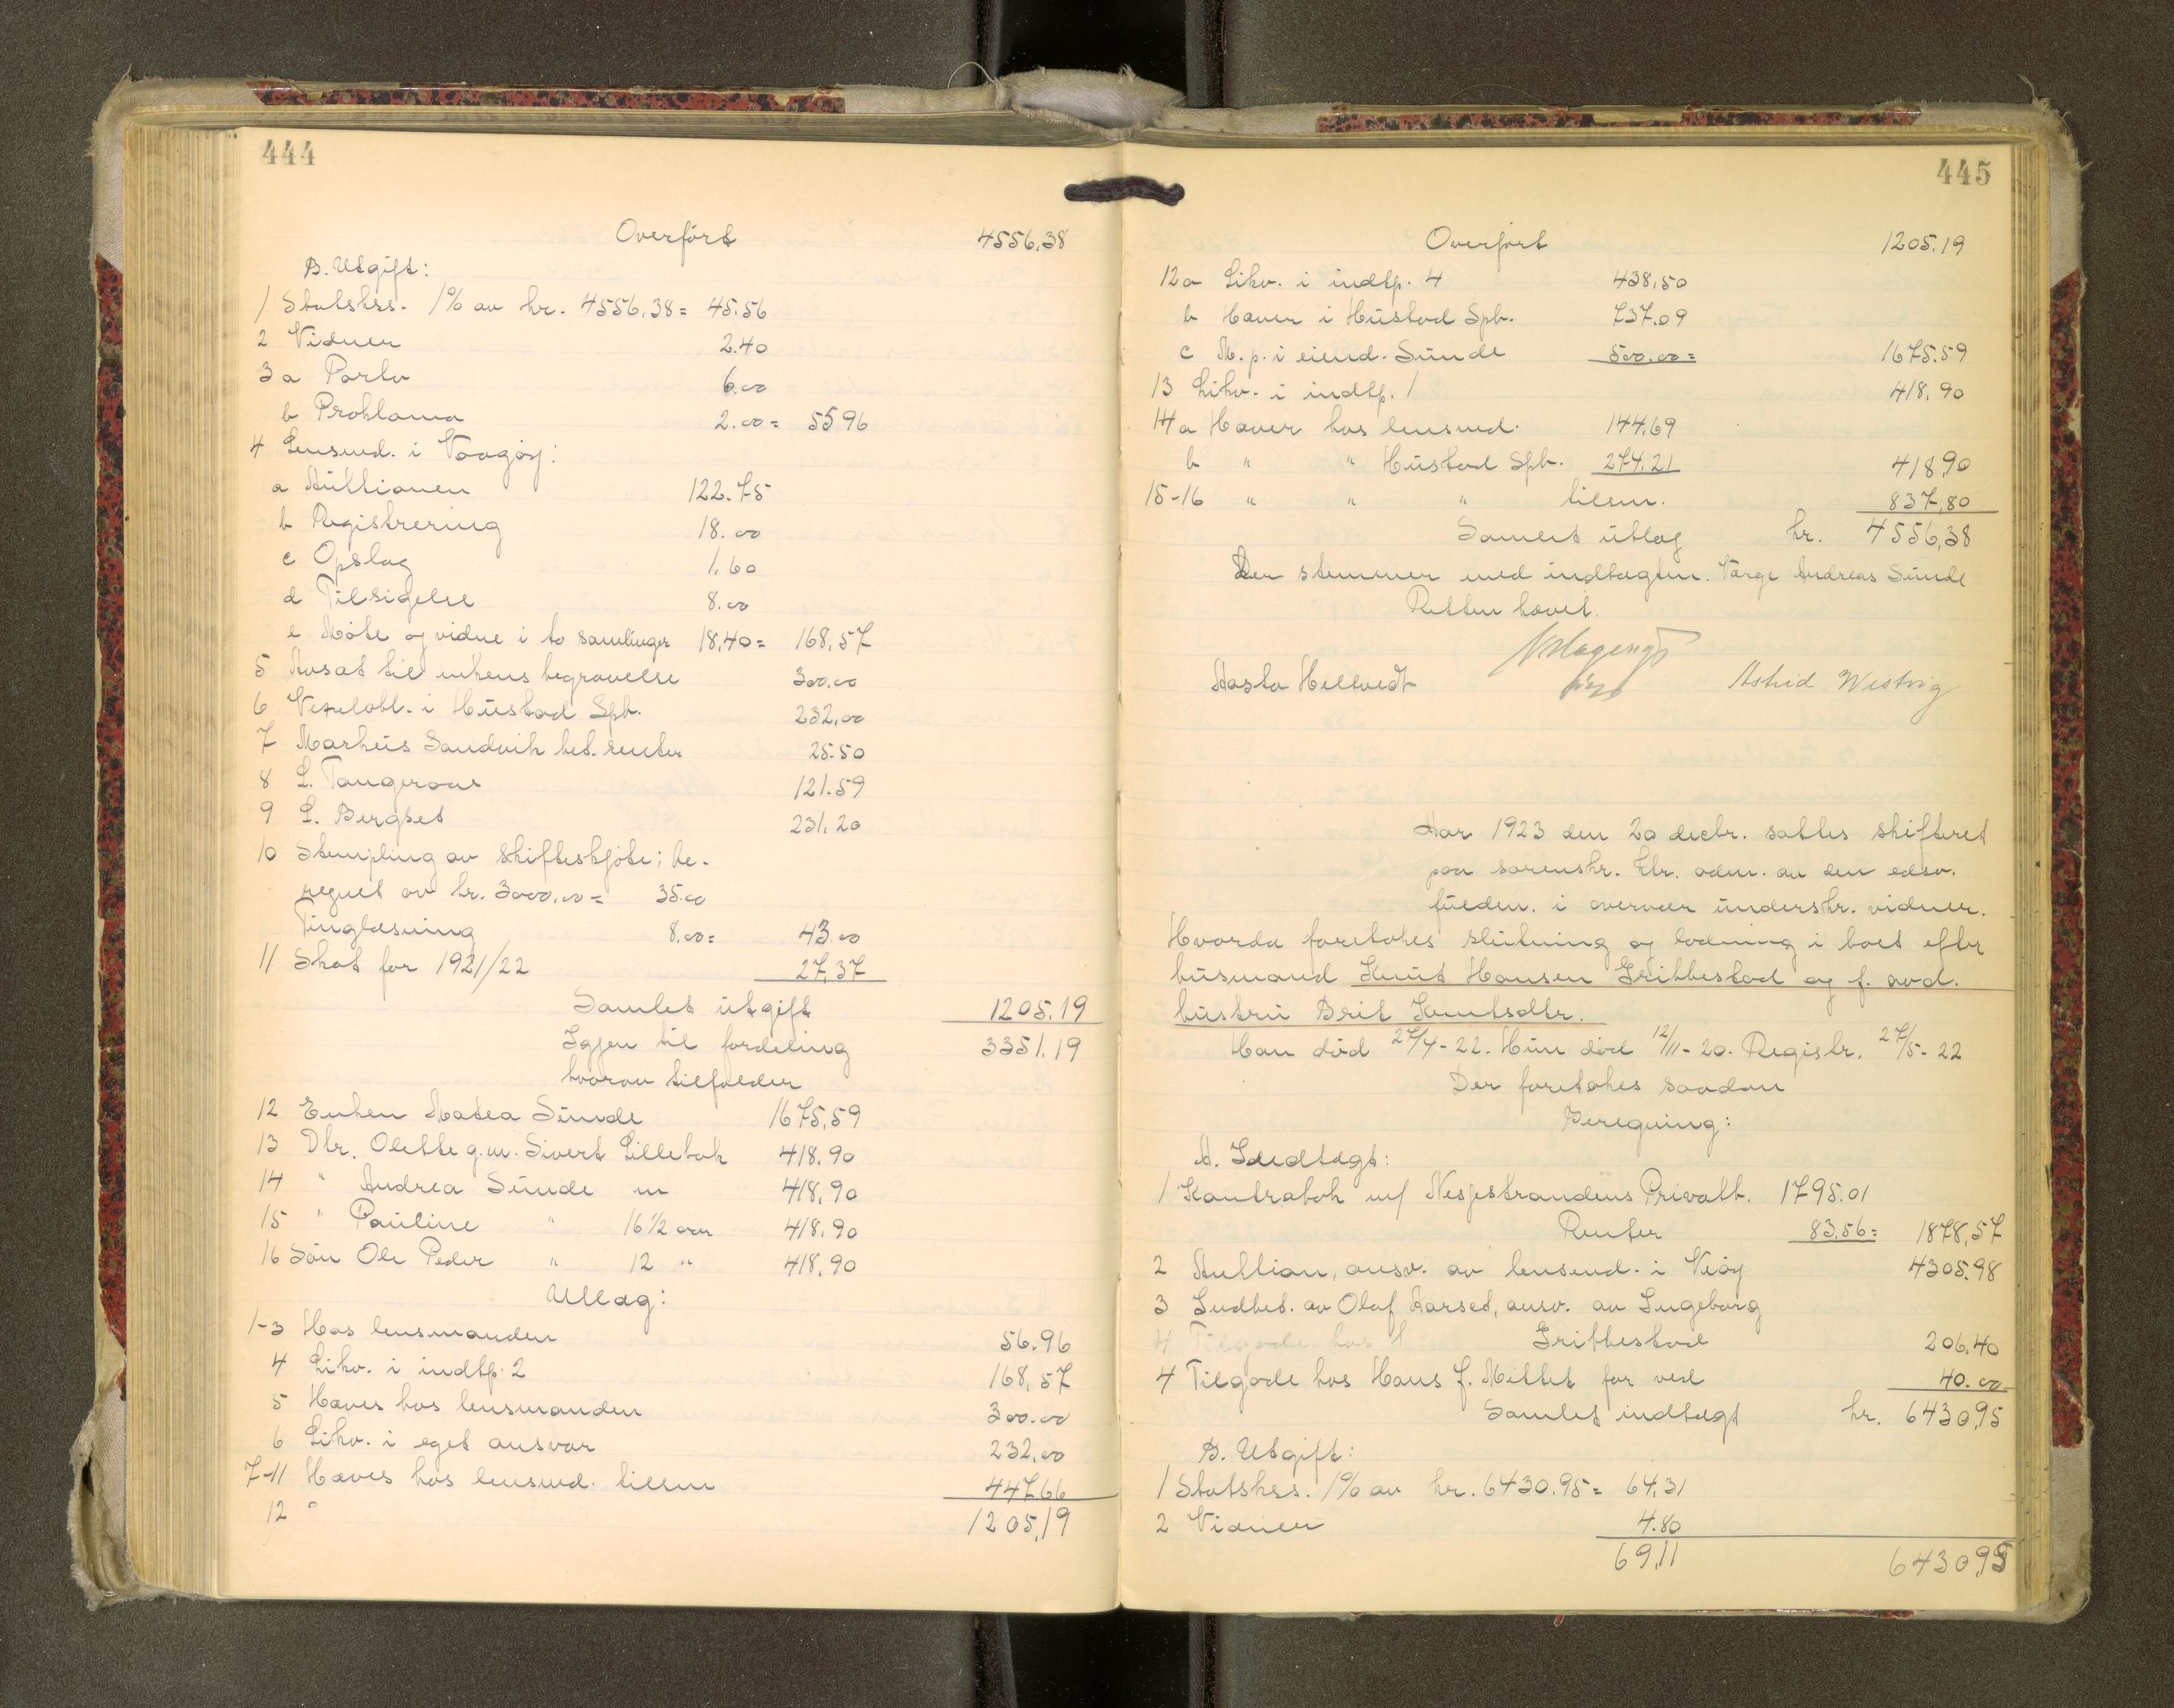 444
Overført 4556,38
B. Utgift:
1 Statskss. 1% av kr. 4556,38 = 45.56
2 Vidner 2.40
3 a Porto 6.00
b Proklama 2.00 = 5596
4 Lensmd. i Vaagøy:
a Auktionen 122.75
b Registrering 18.00
c Opslag 1.60
d Tilsigelse 8.00
e Møte og vidne i to samlinger 18,40 = 168,57
5 Avsat til enkens begravelse 300.00
6 Vexelobl. i Hustad Spb. 232,00
7 Markus Sandvik bet. renter 25.50
8 L. Tangeraas 121.59
9 L. Bergset 231.20
10 Stempling av skifteskjøte; be-
regnet av kr. 3000,00 = 35.00
Tinglæsning 8.00 = 43.00
11 Skat for 1921/22 27,37
Samlet utgift 1205.19
Igjen til fordeling 3351.19
hvorav tilfalder
12 Enken Matea Sunde 1675,59
13 Dtr. Olette g.m. Sivert Lillebak 418.90
14 " Andrea Sunde m 418,90
15 " Pauline " 16 1/2 aar 418.90
16 Søn Ole Peder " 12 " 418,90
Utlæg:
1-3 Hos lensmanden 56.96
4 Likv. i indtp. 2 168,57
5 Haves hos lensmanden 300.00
6 Likv. i eget ansvar 232,00
7-11 Haves hos lensmd. tilsm 447,66
12 "
1205,19
445
Overført 1205.19
12a Likv. i indtp. 4 438,50
b Haver i Hustad Spb. 737.09
c M. p. i eiend. Sunde 500.00 = 1675.59
13 Likv. i indtp. 1 418,90
14a Haver hos lensmd. 144,69
b " " Hustad Spb. 274.21 418,90
15-16 " " " tilsm. 837,80
Samlet utlæg kr. 4556,38
Der stemmer med indtægten. Værge Andreas Sunde
Retten hævet.
Aasta Heltvedt Astrid Westvig
Aar 1923 den 20 decbr. sattes skifteret
paa sorenskr. ktr. adm. av den edsv.
fuldm. i overvær underskr. vidner.
Hvorda foretokes slutning og lodning i boet efter
husmand Knut Hansen Gribbestad og f. avd.
hustru Brit Knutsdtr.
Han død 27/4-22. Hun død 12/11-20. Registr. 27/5-22
Der foretokes saadan
Beregning:
A. Indtægt:
1 Kontrabok m/ Nesjestrandens Privatb. 1795.01
Renter 83,56 = 1878,57
2 Auktion, ansv. av lensmd. i Veøy 4305.98
3 Indbet. av Olaf Aarset, ansv. av Ingeborg
4 Tilgode hos H Gribbestad 206.40
4 Tilgode hos Hans J. Mittet for ved 40.00
Samlet indtægt kr. 6430,95
B. Utgift:
1 Statskss. 1% av kr. 6430.95 = 64,31
2 Vidner 4.80
69,11 6430,95